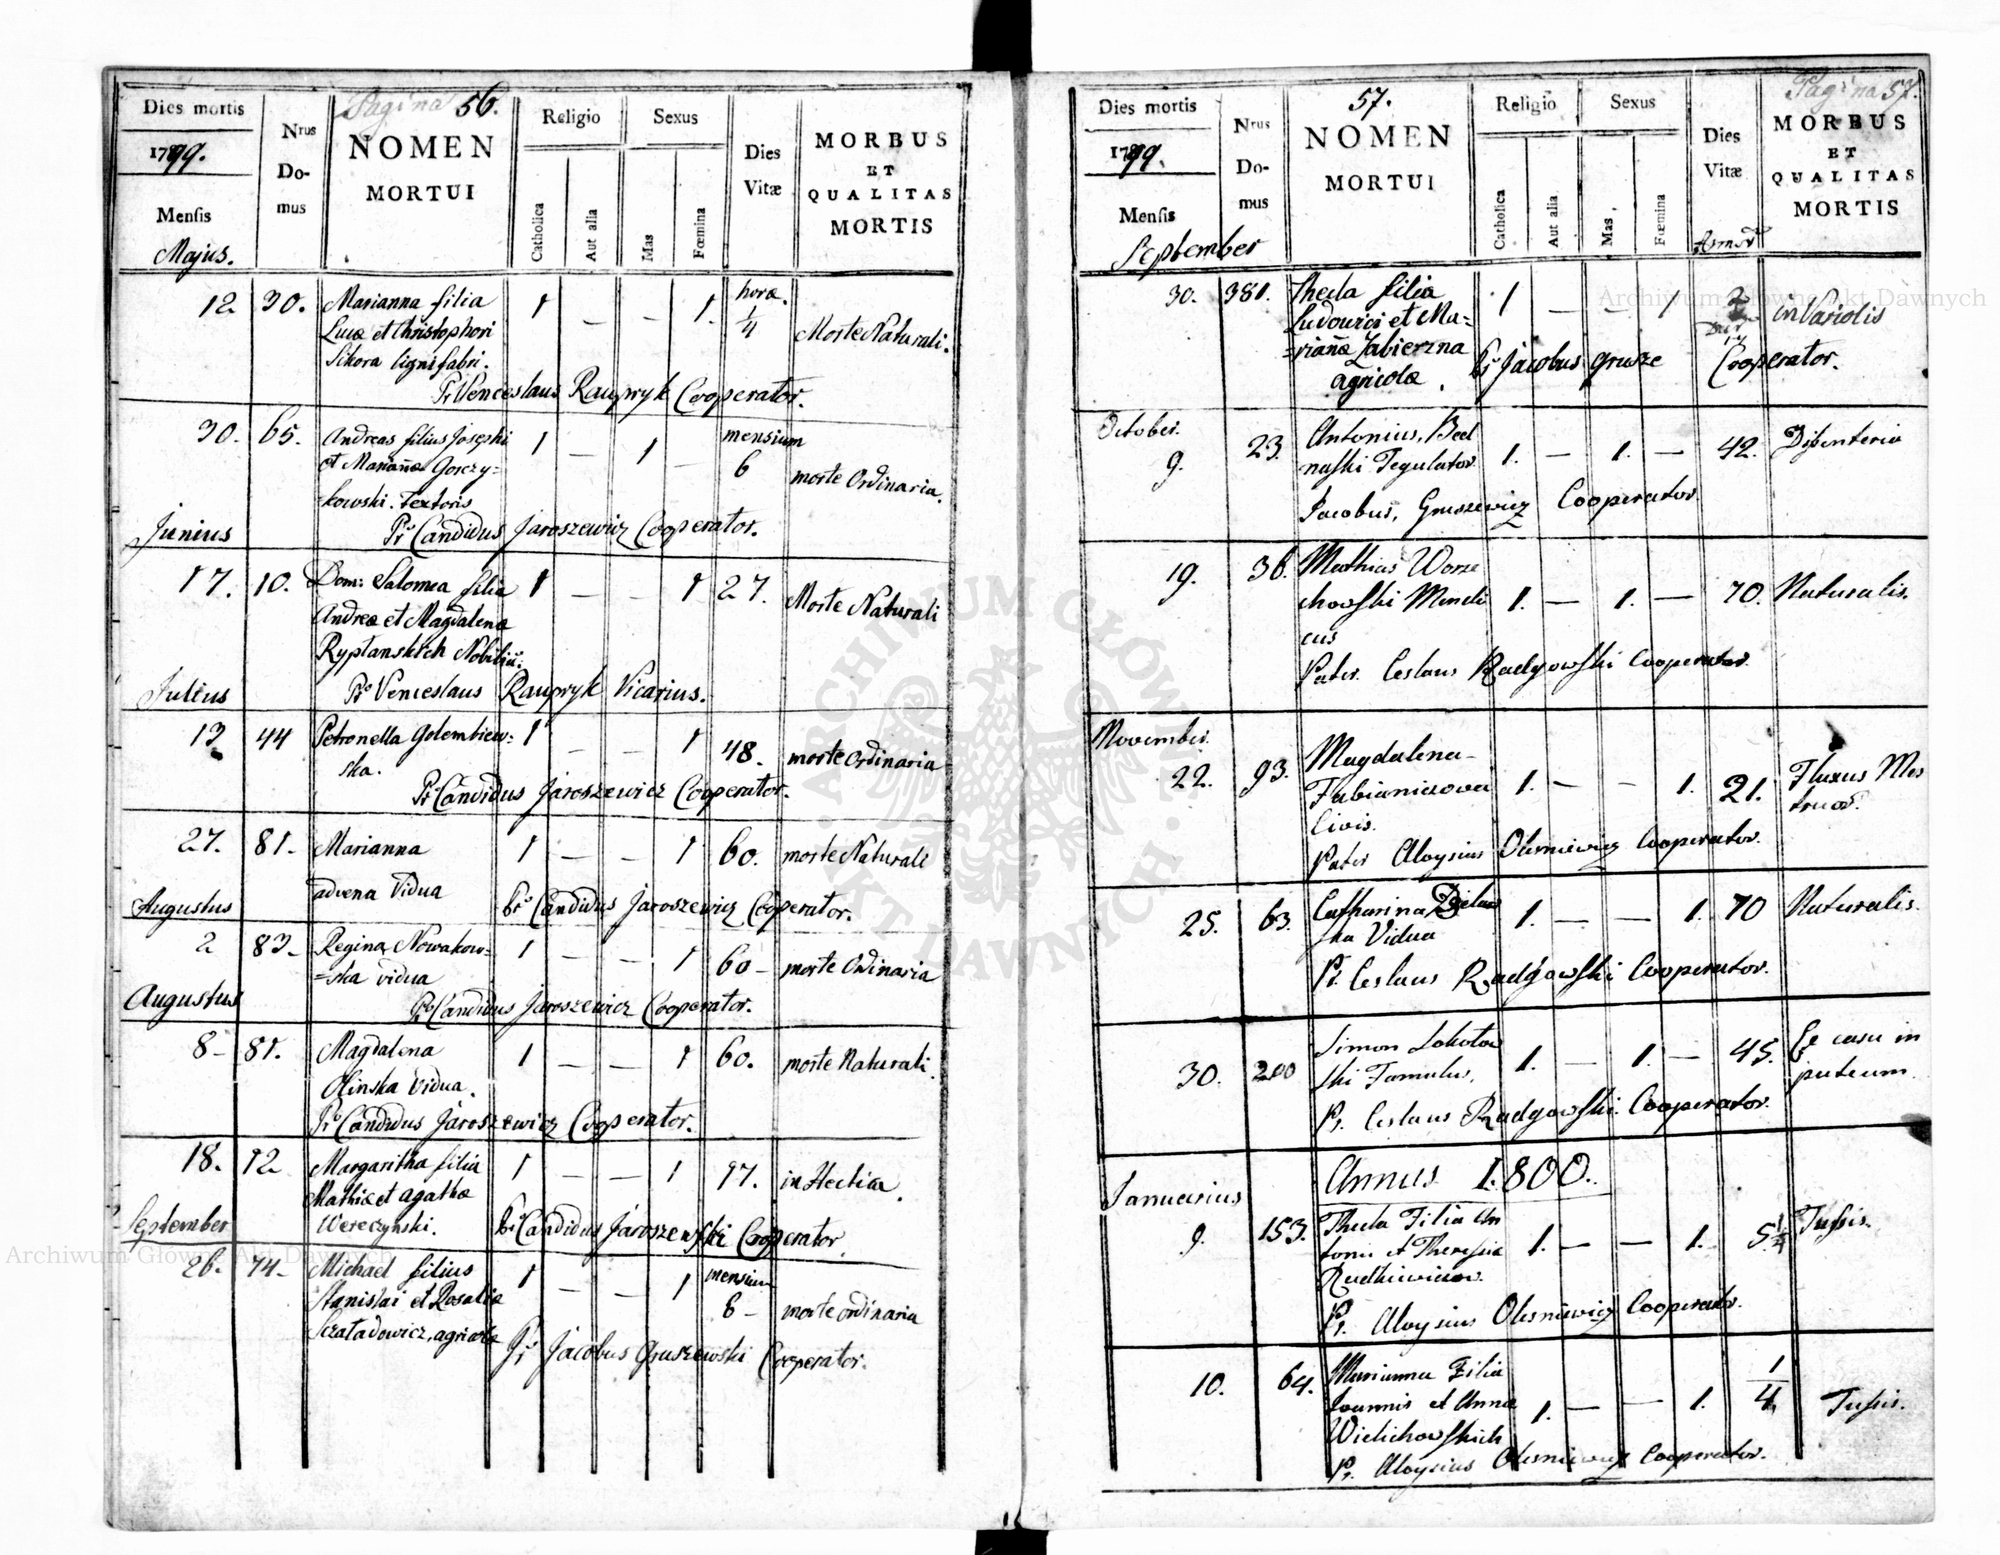 Pagina 56.
Dies mortis
1799.
Mensis
Majus.
Nrus
Do-
mus
NOMEN
MORTUI
Religio
Catholica
Aut alia
Sexus
Mas
Fœmina
Dies
Vitæ
MORBUS
ET
QUALITAS
MORTIS
12. 30. Marianna filia 1 — — 1. horæ.
Lucæ et Christophori 1/4 Morte Naturali.
Sikora lignifabri.
Pr Venceslaus Raupryk Cooperator.
30. 65. Andreas filius Josephi 1 — 1 — mensium
et Mariañæ Gorczy= 6 morte Ordinaria.
=kowski. Textoris
Pr Candidus Jaroszewicz Cooperator.
Junius
17. 10. Dom: Salomea filia 1 — — 1 27. Morte Naturali
Andreæ et Magdalenæ
Ryptanskich Nobiliũ.
Pr Venceslaus Raupryk Vicarius.
Julius
13 44 Petronella Golembiew= 1 — — 1 48. morte Ordinaria
ska.
Pr Candidus Jaroszewicz Cooperator.
27. 81. Marianna 1 — — 1 60. morte Naturali
advena Vidua Pr Candidus Jaroszewicz Cooperator.
Augustus
2 83. Regina Nowakow= 1 — — 1 60 — morte Ordinaria
=ska vidua
Pr Candidus Jaroszewicz Cooperator.
Augustus
8 — 81. Magdalena 1 — — 1 60. morte Naturali.
Olinska Vidua.
Pr Candidus Jaroszewicz Cooperator.
18. 12 Margaritha filia 1 — — 1 17. in Hectica.
Mathiæ et Agathæ
Wereczynski. Pr Candidus Jaroszewski Cooperator.
September
26. 74 — Michael filius 1 — — 1 mensium
Stanislai et Rosaliæ 8 — morte ordinaria
agricolæ
Pr Jacobus Gruszewski Cooperator.
Pagina 57.
57.
Dies mortis
1799.
Mensis
September
Nrus
Do-
mus
NOMEN
MORTUI
Religio
Catholica
Aut alia
Sexus
Mas
Fœmina
Dies
Vitæ
MORBUS
ET
QUALITAS
MORTIS
30. 381. Thecla filia 1 — — 1 in Variolis
Ludovici et Ma=
=riañæ Zabierzna
agricolæ. Pr Jacobus Grusze Cooperator.
October.
9. 23. Antonius, Bed 1. — 1. — 42. Disenteria
naski Tegulator
Jacobus, Gruszewicz Cooperator
19. 36. Mathias Worze
chowski Mendi 1. — 1. — 70. Naturalis.
cus
Pater. Ceslaus Radgowski Cooperator.
November.
22. 93. Magdalena 1. — — 1. 21. Fluxus Mes
Fabianiczowa truos.
Civis.
Pater Aloysius Olesniewicz Cooperator.
25. 63. Catharina 1. — — 1. 70 Naturalis.
ska Vidua
Pr. Ceslaus Radgowski Cooperator.
30. 200 Simon Lokotow 1. — 1. — 45. Ex casu in
ski Famulus. puteum.
Pr. Ceslaus Radgowski. Cooperator.
Annus 1.800.
Januarius
9. 153. Thecla Filia An 1. — — 1. 5 1/4 Tussis.
tonii et Theresiæ
Pr. Aloysius Olesniewicz Cooperator.
10. 64. Marianna Filia 1. — — 1. 1/4 Tussis.
Joannis et Annæ
Wielichowskich
Pr. Aloysius Olesniewicz Cooperator.
Archiwum Główne Akt Dawnych
Archiwum Główne Akt Dawnych
ARCHIWUM GŁÓWNE AKT DAWNYCH